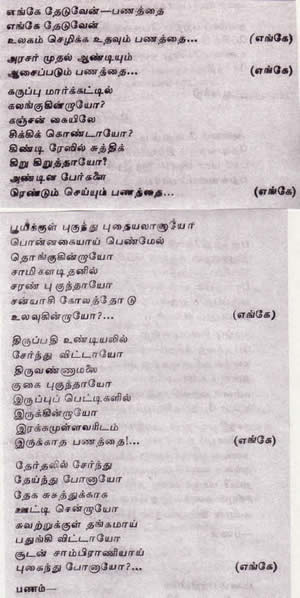 எங்கே தேடுவேன்—பணத்தை
எங்கே தேடுவேன்
உலகம் செழிக்க உதவும் பணத்தை... (எங்கே)
அரசர் முதல் ஆண்டியும்
ஆசைப்படும் பணத்தை... (எங்கே)
கருப்பு மார்க்கட்டில்
கலங்குகின்றாயோ?
கஞ்சன் கையிலே
சிக்கிக் கொண்டாயோ?
கிண்டி ரேஸில் சுத்திக்
கிறு கிறுத்தாயோ?
அண்டின பேர்களை
ரெண்டும் செய்யும் பணத்தை... (எங்கே)
பூமிக்குள் புகுந்து புதையலானாயோ
பொன்னகையாய் பெண்மேல்
தொங்குகின்றாயோ
சாமிகளடிதனில்
சரண் புகுந்தாயோ
சன்யாசி கோலத்தோடு
உலவுகின்றாயோ?... (எங்கே)
திருப்பதி உண்டியலில்
சேர்ந்து விட்டாயோ
திருவண்ணாமலை
குகை புகுந்தாயோ
இருப்புப் பெட்டிகளில்
இருக்கின்றாயோ
இரக்கமுள்ளவரிடம்
இருக்காத பணத்தை!... (எங்கே)
தேர்தலில் சேர்ந்து
தேய்ந்து போனாயோ
தேக சுகத்துக்காக
ஊட்டி சென்றாயோ
சுவற்றுக்குள் தங்கமாய்
பதுங்கி விட்டாயோ
சூடன் சாம்பிராணியாய்
புகைந்து போனாயோ?... (எங்கே)
பணம்—